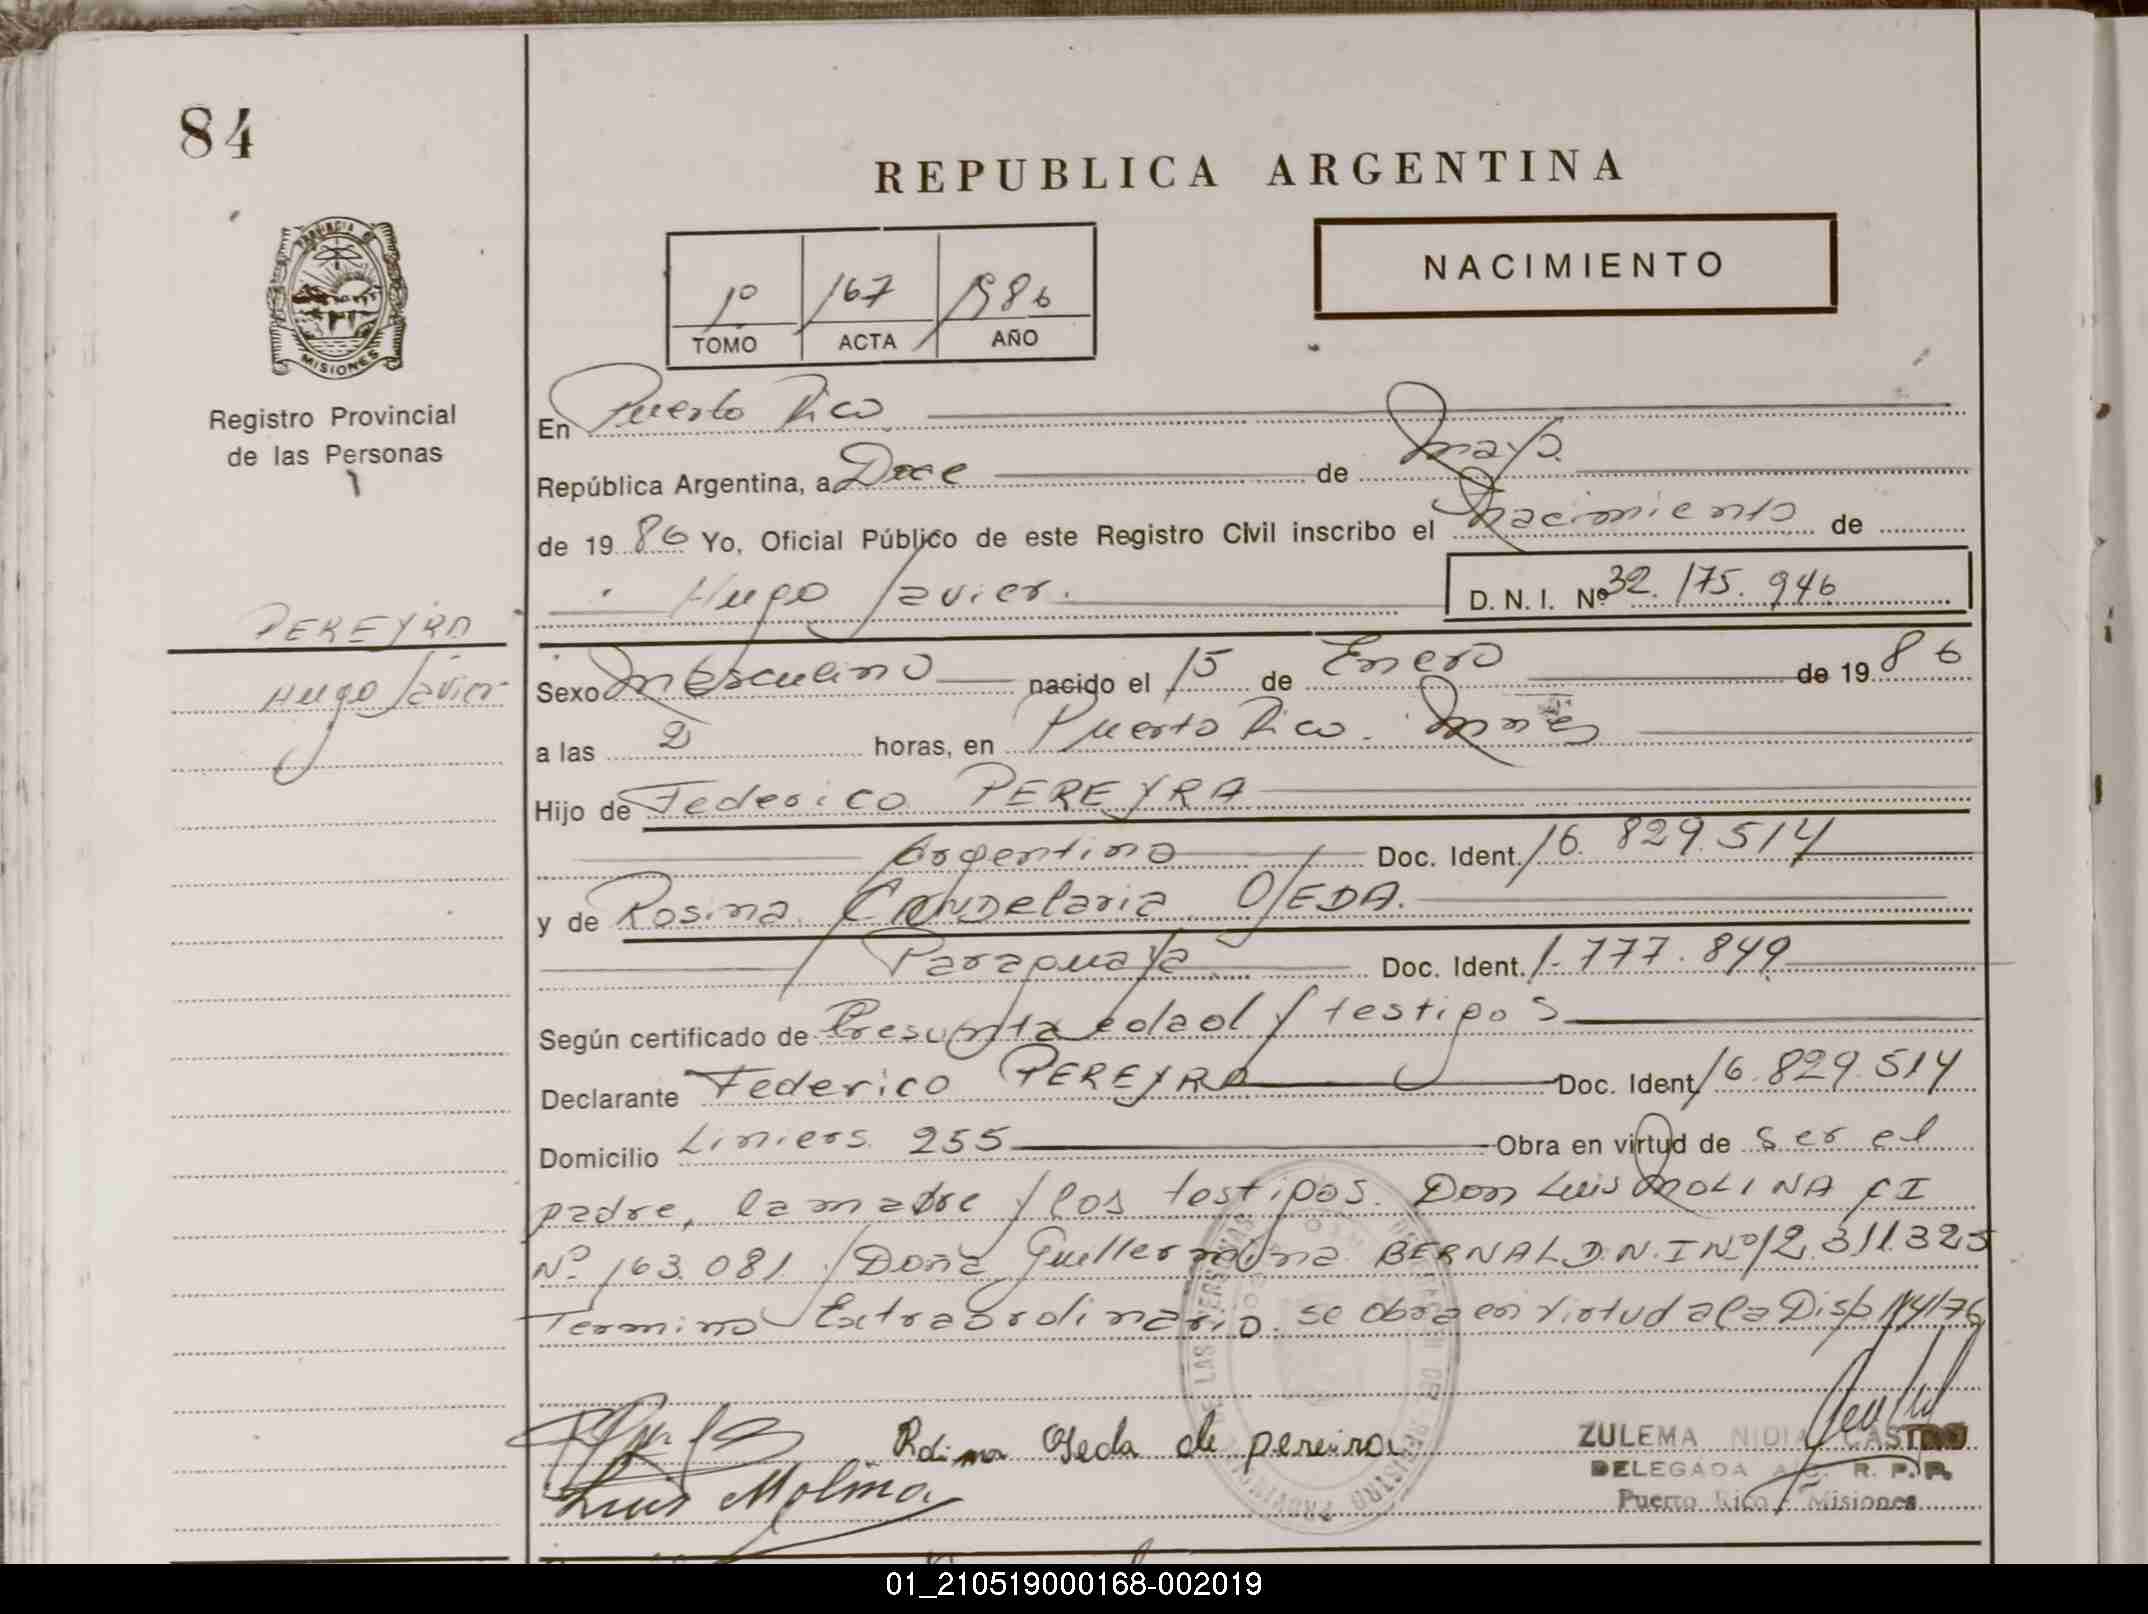 84
REPUBLICA ARGENTINA
1º 167 1986
TOMO ACTA AÑO
NACIMIENTO
PROVINCIA DE
MISIONES
Registro Provincial
de las Personas
En Puerto Rico
República Argentina, a Doce de mayo.
de 1986 Yo, Oficial Público de este Registro Civil inscribo el nacimiento de
Hugo Javier.
D. N. I. Nº 32.175.946
PEREYRA
Hugo Javier
Sexo masculino nacido el 15 de Enero de 1986
a las 2 horas, en Puerto Rico. Mnes
Hijo de Federico PEREYRA
Argentino Doc. Ident. 16.829.514
y de Rosina Candelaria OJEDA.
Paraguaya Doc. Ident. 1.777.849
Según certificado de Presunta edad y testigos
Declarante Federico PEREYRA Doc. Ident 16.829.514
Domicilio Liniers 255 Obra en virtud de ser el
padre, la madre y los testigos. Don Luis MOLINA CI
Nº 163.081 y Doña Guillermina BERNAL D.N.I Nº 12.311.325
Termino Extraordinario. se obra en virtud a la Disp 114/76
Ojeda de pereira
Luis Molina
ZULEMA NIDIA CASTRO
DELEGADA A/C. R. P. P.
Puerto Rico - Misiones
01_210519000168-002019